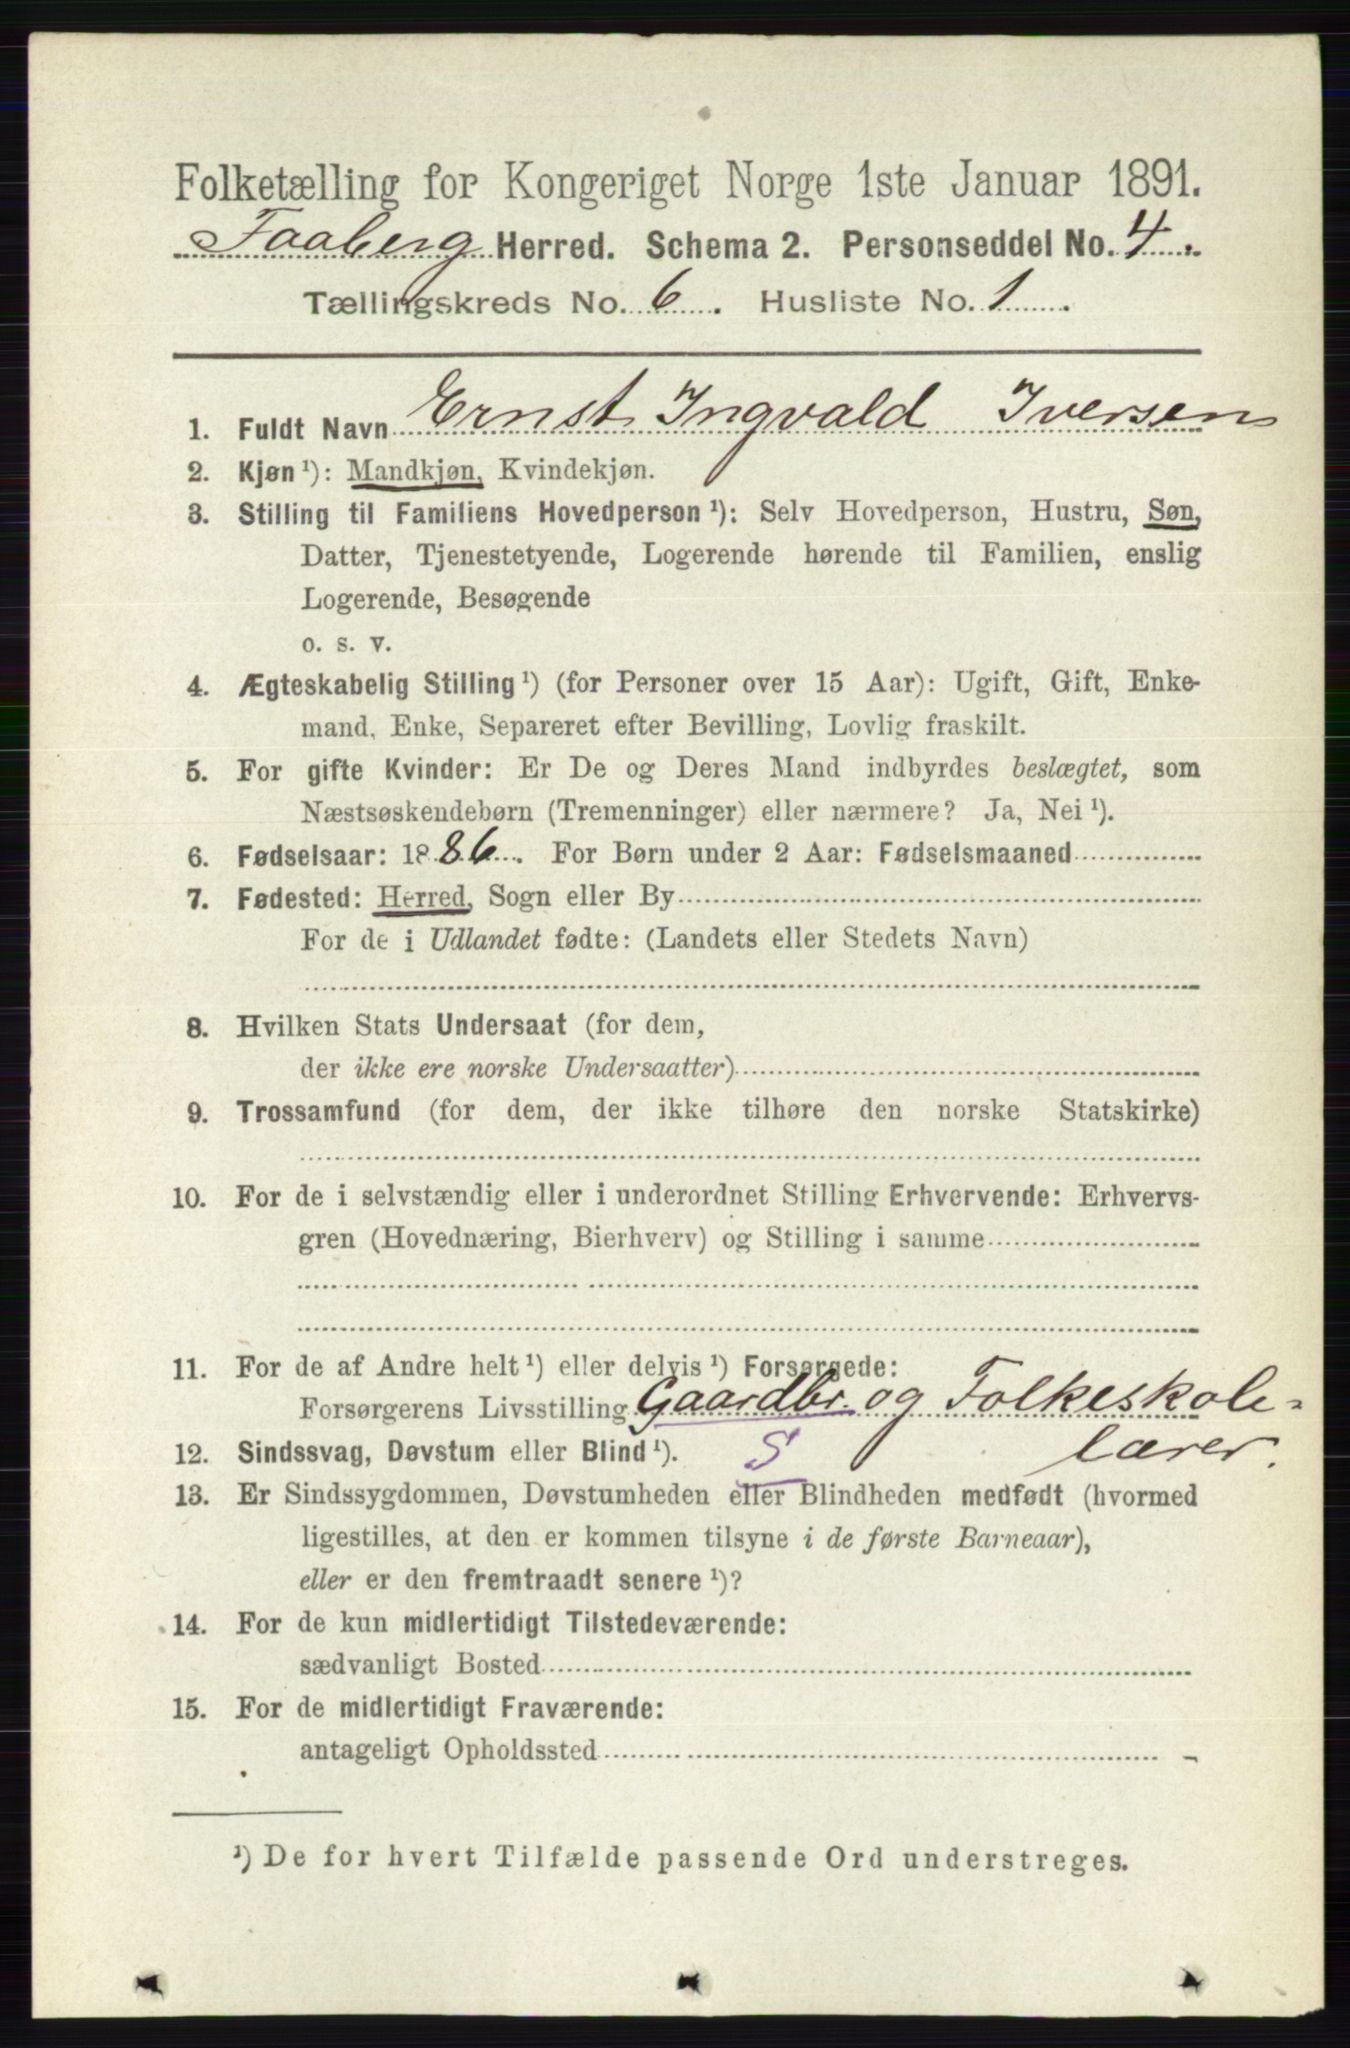 Folketælling for Kongeriget Norge 1ste Januar 1891.
Faaberg Herred. Schema 2. Personseddel No. 4.
Tællingskreds No. 6. Husliste No. 1.
1. Fuldt Navn Ernst Ingvald Iversen
2. Kjøn ¹): Mandkjøn, Kvindekjøn.
3. Stilling til Familiens Hovedperson ¹): Selv Hovedperson, Hustru, Søn,
Datter, Tjenestetyende, Logerende hørende til Familien, enslig
Logerende, Besøgende
o. s. v.
4. Ægteskabelig Stilling ¹) (for Personer over 15 Aar): Ugift, Gift, Enke-
mand, Enke, Separeret efter Bevilling, Lovlig fraskilt.
5. For gifte Kvinder: Er De og Deres Mand indbyrdes beslægtet, som
Næstsøskendebørn (Tremenninger) eller nærmere? Ja, Nei ¹).
6. Fødselsaar: 1886. For Børn under 2 Aar: Fødselsmaaned
7. Fødested: Herred, Sogn eller By
For de i Udlandet fødte: (Landets eller Stedets Navn)
8. Hvilken Stats Undersaat (for dem,
der ikke ere norske Undersaatter)
9. Trossamfund (for dem, der ikke tilhøre den norske Statskirke)
10. For de i selvstændig eller i underordnet Stilling Erhvervende: Erhvervs-
gren (Hovednæring, Bierhverv) og Stilling i samme
11. For de af Andre helt ¹) eller delvis ¹) Forsørgede:
Forsørgerens Livsstilling Gaardbr. og Folkeskole-
lærer.
12. Sindssvag, Døvstum eller Blind ¹). S
13. Er Sindssygdommen, Døvstumheden eller Blindheden medfødt (hvormed
ligestilles, at den er kommen tilsyne i de første Barneaar),
eller er den fremtraadt senere ¹)?
14. For de kun midlertidigt Tilstedeværende:
sædvanligt Bosted
15. For de midlertidigt Fraværende:
antageligt Opholdssted
¹) De for hvert Tilfælde passende Ord understreges.